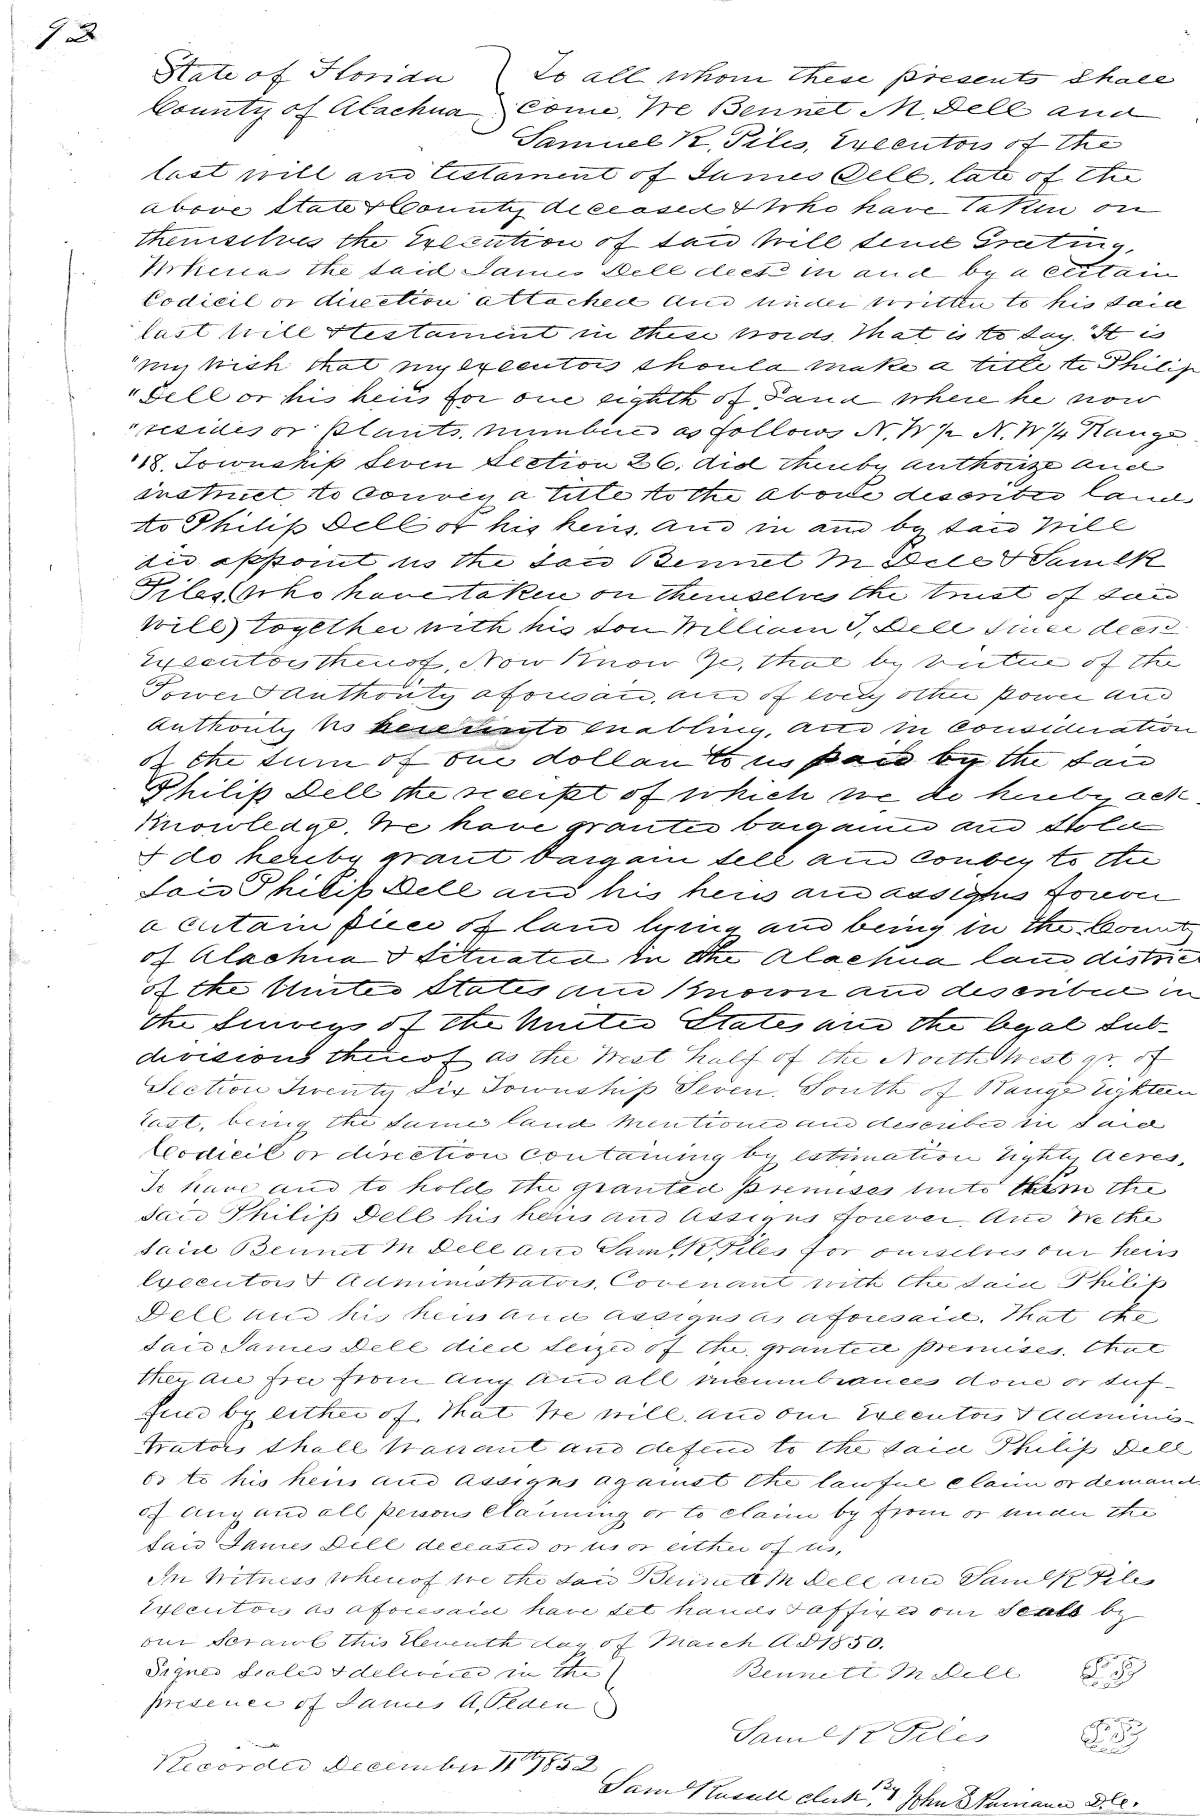 92
State of Florida ) To all whom these presents shall
County of Alachua ) come, We Bennet M. Dell and
Samuel K. Piles, Executors of the
last will and testament of James Dell, late of the
above State & County deceased & who have taken on
themselves the Execution of said Will send Greeting,
Whereas the said James Dell decd in and by a certain
Codicil or direction attached and under written to his said
last will & testament in these words that is to say "It is
"my wish that my executors should make a title to Philip
"Dell or his heirs for one eighth of Land where he now
"resides or plants, numbered as follows N. W 1/2 N. W 1/4 Range
"18. Township Seven Section 26. did thereby authorize and
instruct to convey a title to the above described land
to Philip Dell or his heirs, and in and by said Will
did appoint us the said Bennet M Dell & Saml K
Piles (who have taken on themselves the trust of said
will) together with his son William J, Dell since decd
Executors thereof, Now Know Ye, that by virtue of the
Power & authority aforesaid, and of every other power and
authority us hereunto enabling, and in consideration
of the sum of one dollar to us paid by the said
Philip Dell the receipt of which we do hereby ack-
knowledge, We have granted bargained and sold
& do hereby grant bargain sell and convey to the
said Philip Dell and his heirs and assigns forever
a certain piece of land lying and being in the County
of Alachua & situated in the Alachua land district
of the United States and Known and described in
the Surveys of the United States and the legal sub-
divisions thereof as the West half of the North West qr. of
Section Twenty Six Township Seven, South of Range Eighteen
East, being the same land mentioned and described in said
Codicil or direction containing by estimation Eighty Acres,
To have and to hold the granted premises unto them the
said Philip Dell his heirs and Assigns forever. And We the
said Bennet M Dell and Saml. K, Piles for ourselves our heirs
Executors & Administrators, Covenant with the said Philip
Dell and his heirs and assigns as aforesaid. That the
said James Dell died seized of the granted premises. that
they are free from any and all incumbrances done or suf-
fered by either of, that We will, and our Executors & Adminis-
trators shall warrant and defend to the said Philip Dell
or to his heirs and assigns against the lawful claim or demand
of any and all persons claiming or to claim by from or under the
said James Dell deceased or us or either of us,
In Witness whereof we the said Bennett M Dell and Saml K Piles
Executors as aforesaid have set hands & affixed our Seals by
our Scrawl this Eleventh day of March AD 1850.
Signed Sealed & delivered in the ) Bennett M Dell L. S.
presence of James A, Peden )
Saml K Piles L. S.
Recorded December 11th 1852
Saml Russell clerk, By John D D.C.